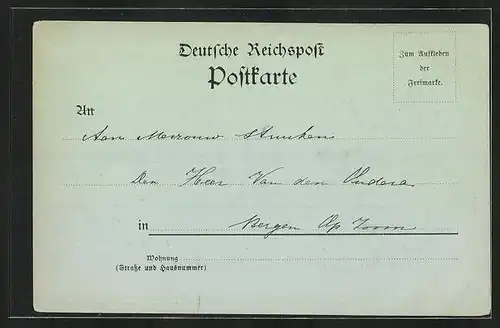 Deutsche Reichspost
Postkarte
Zum Aufkleben
der
Freimarke.
An
Aan Mevrouw
Den Heer Van den
in Bergen Op Zoom
Wohnung
(Straße und Hausnummer)